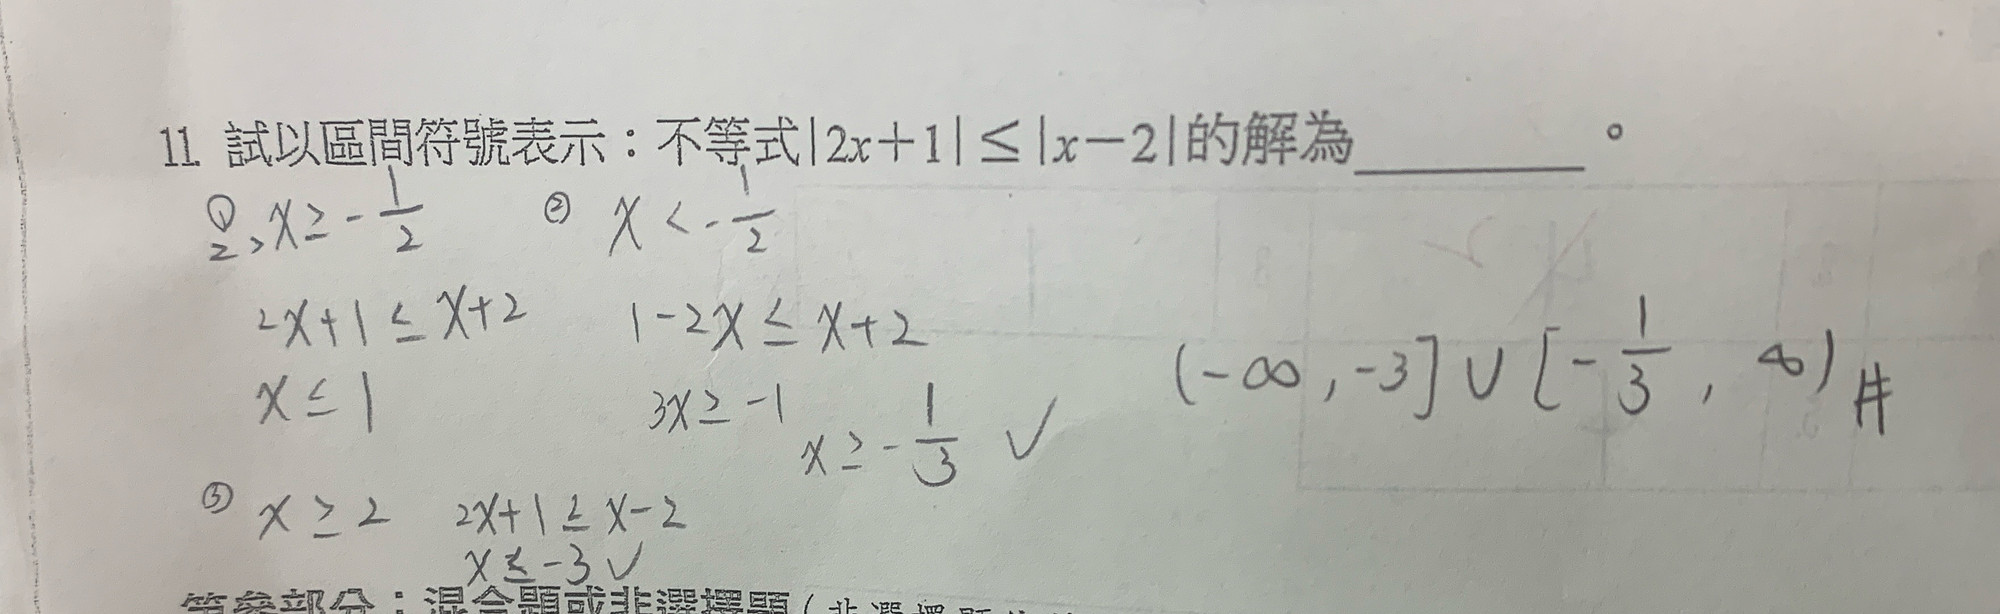 11. 試以區間符號表示：不等式|2x+1| ≤ |x−2|的解為________。
① 2 > x ≥ -1/2
② x < -1/2
2x+1 ≤ x+2
1-2x ≤ x+2
x ≤ 1
3x ≥ -1
x ≥ -1/3 ✓
(-∞, -3] ∪ [-1/3, ∞) #
③ x ≥ 2 2x+1 ≤ x-2
x ≤ -3 ✓
第參部分：混合題或非選擇題